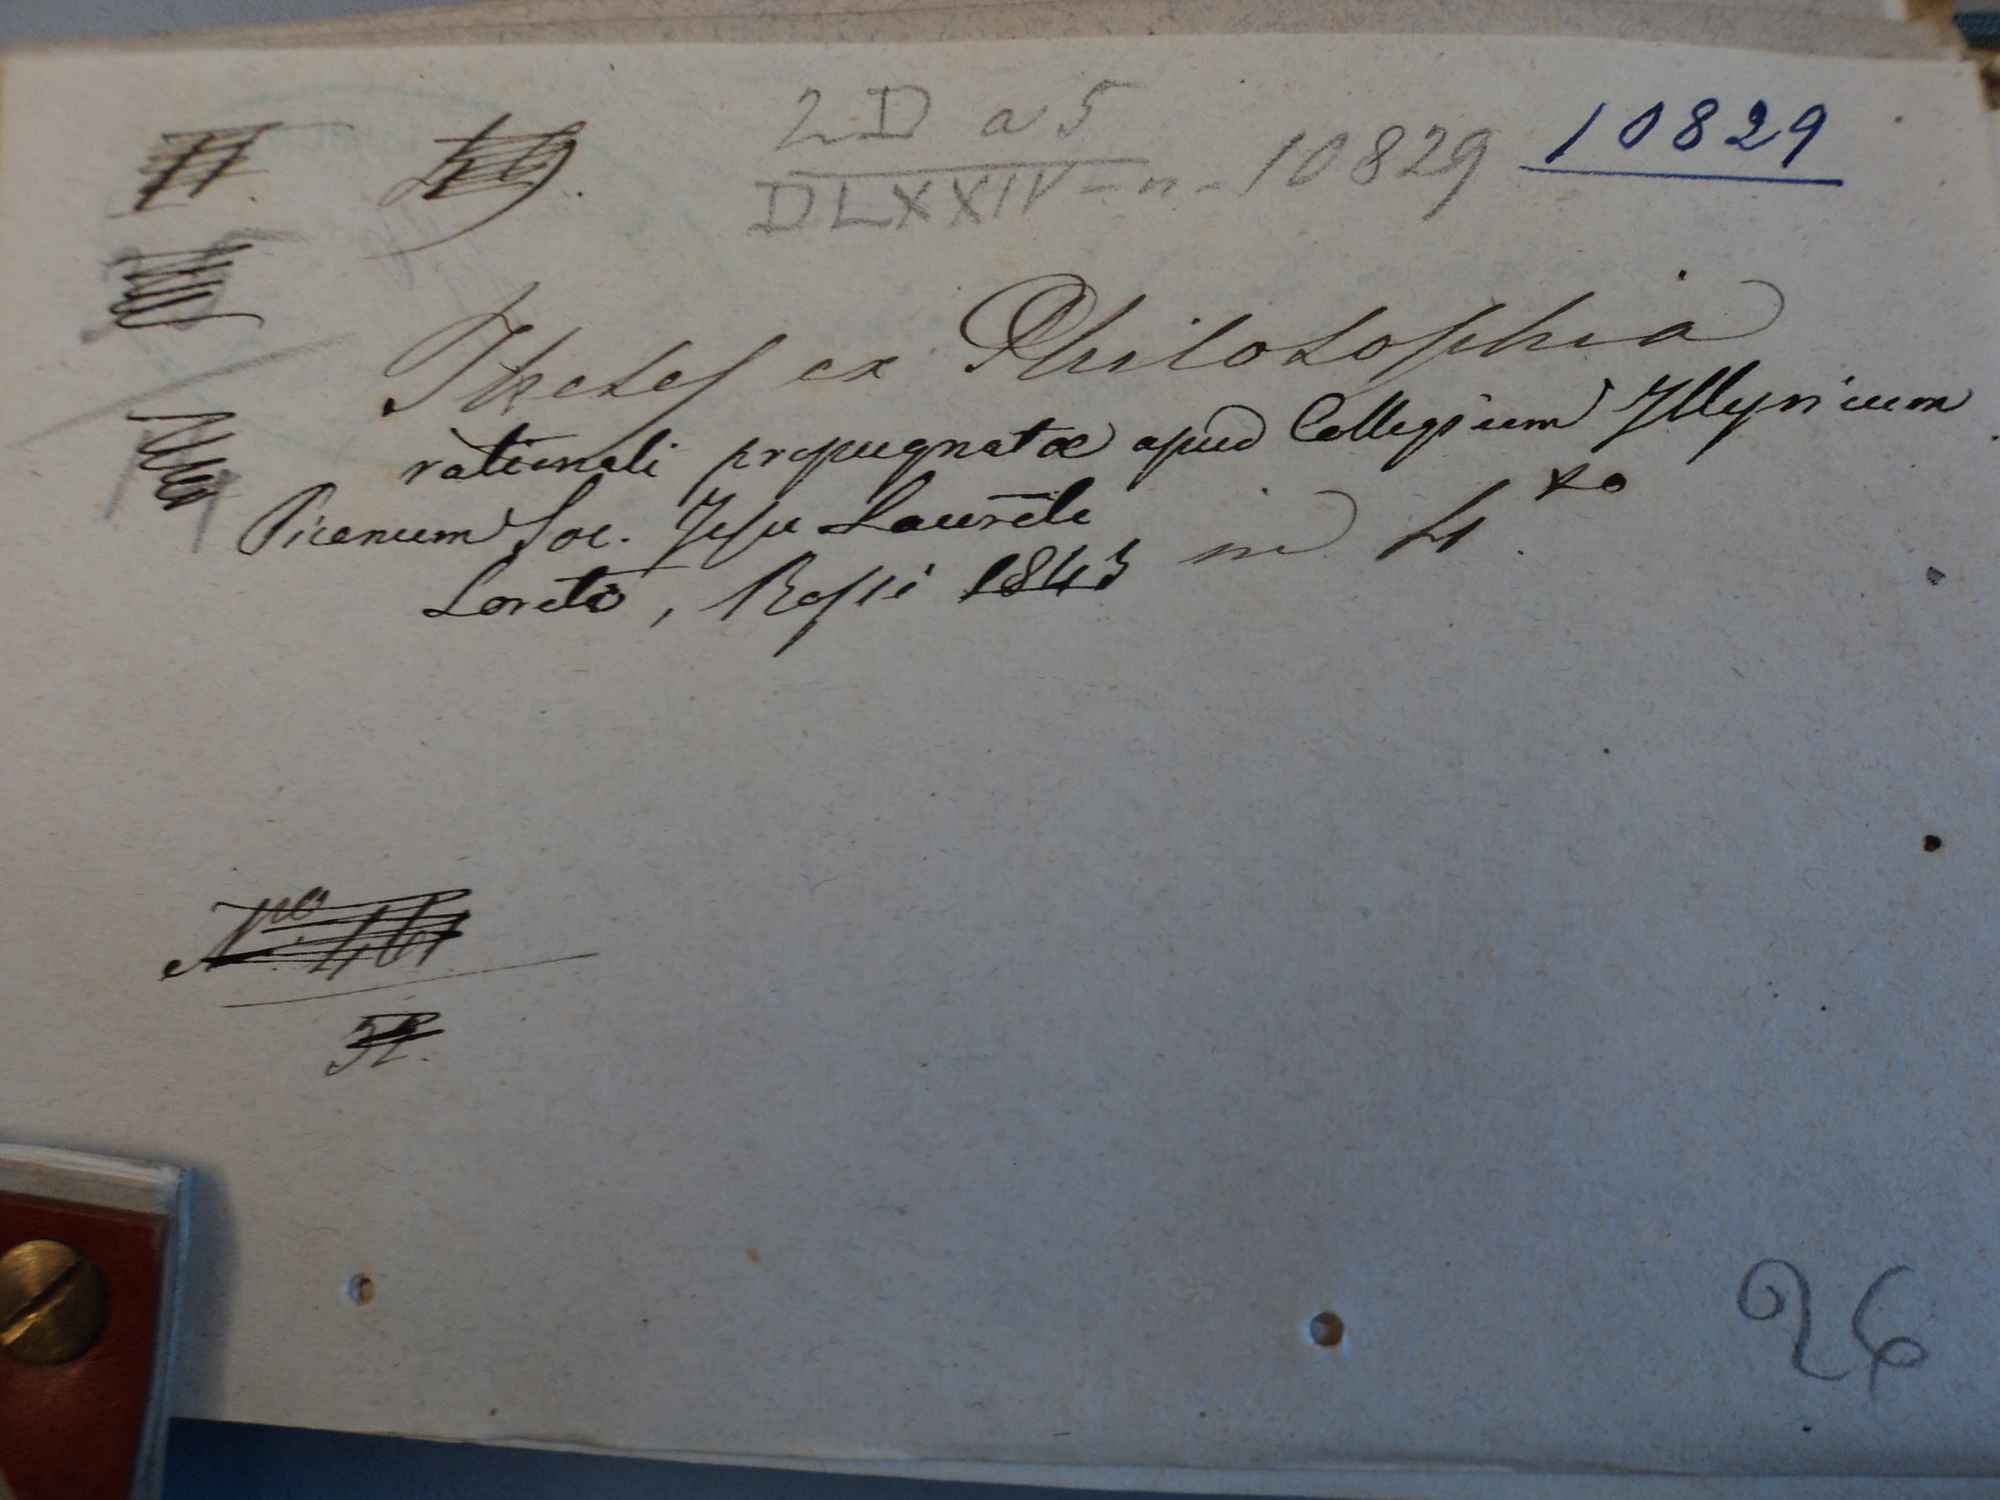 2D a 5
DLXXIV - n - 10829 10829
Theses ex Philosophia
rationali propugnatæ apud Collegium Illyricum
Picenum Soc. Jesu Laurēte
Loreto, Rossi 1843 in 4.to
26